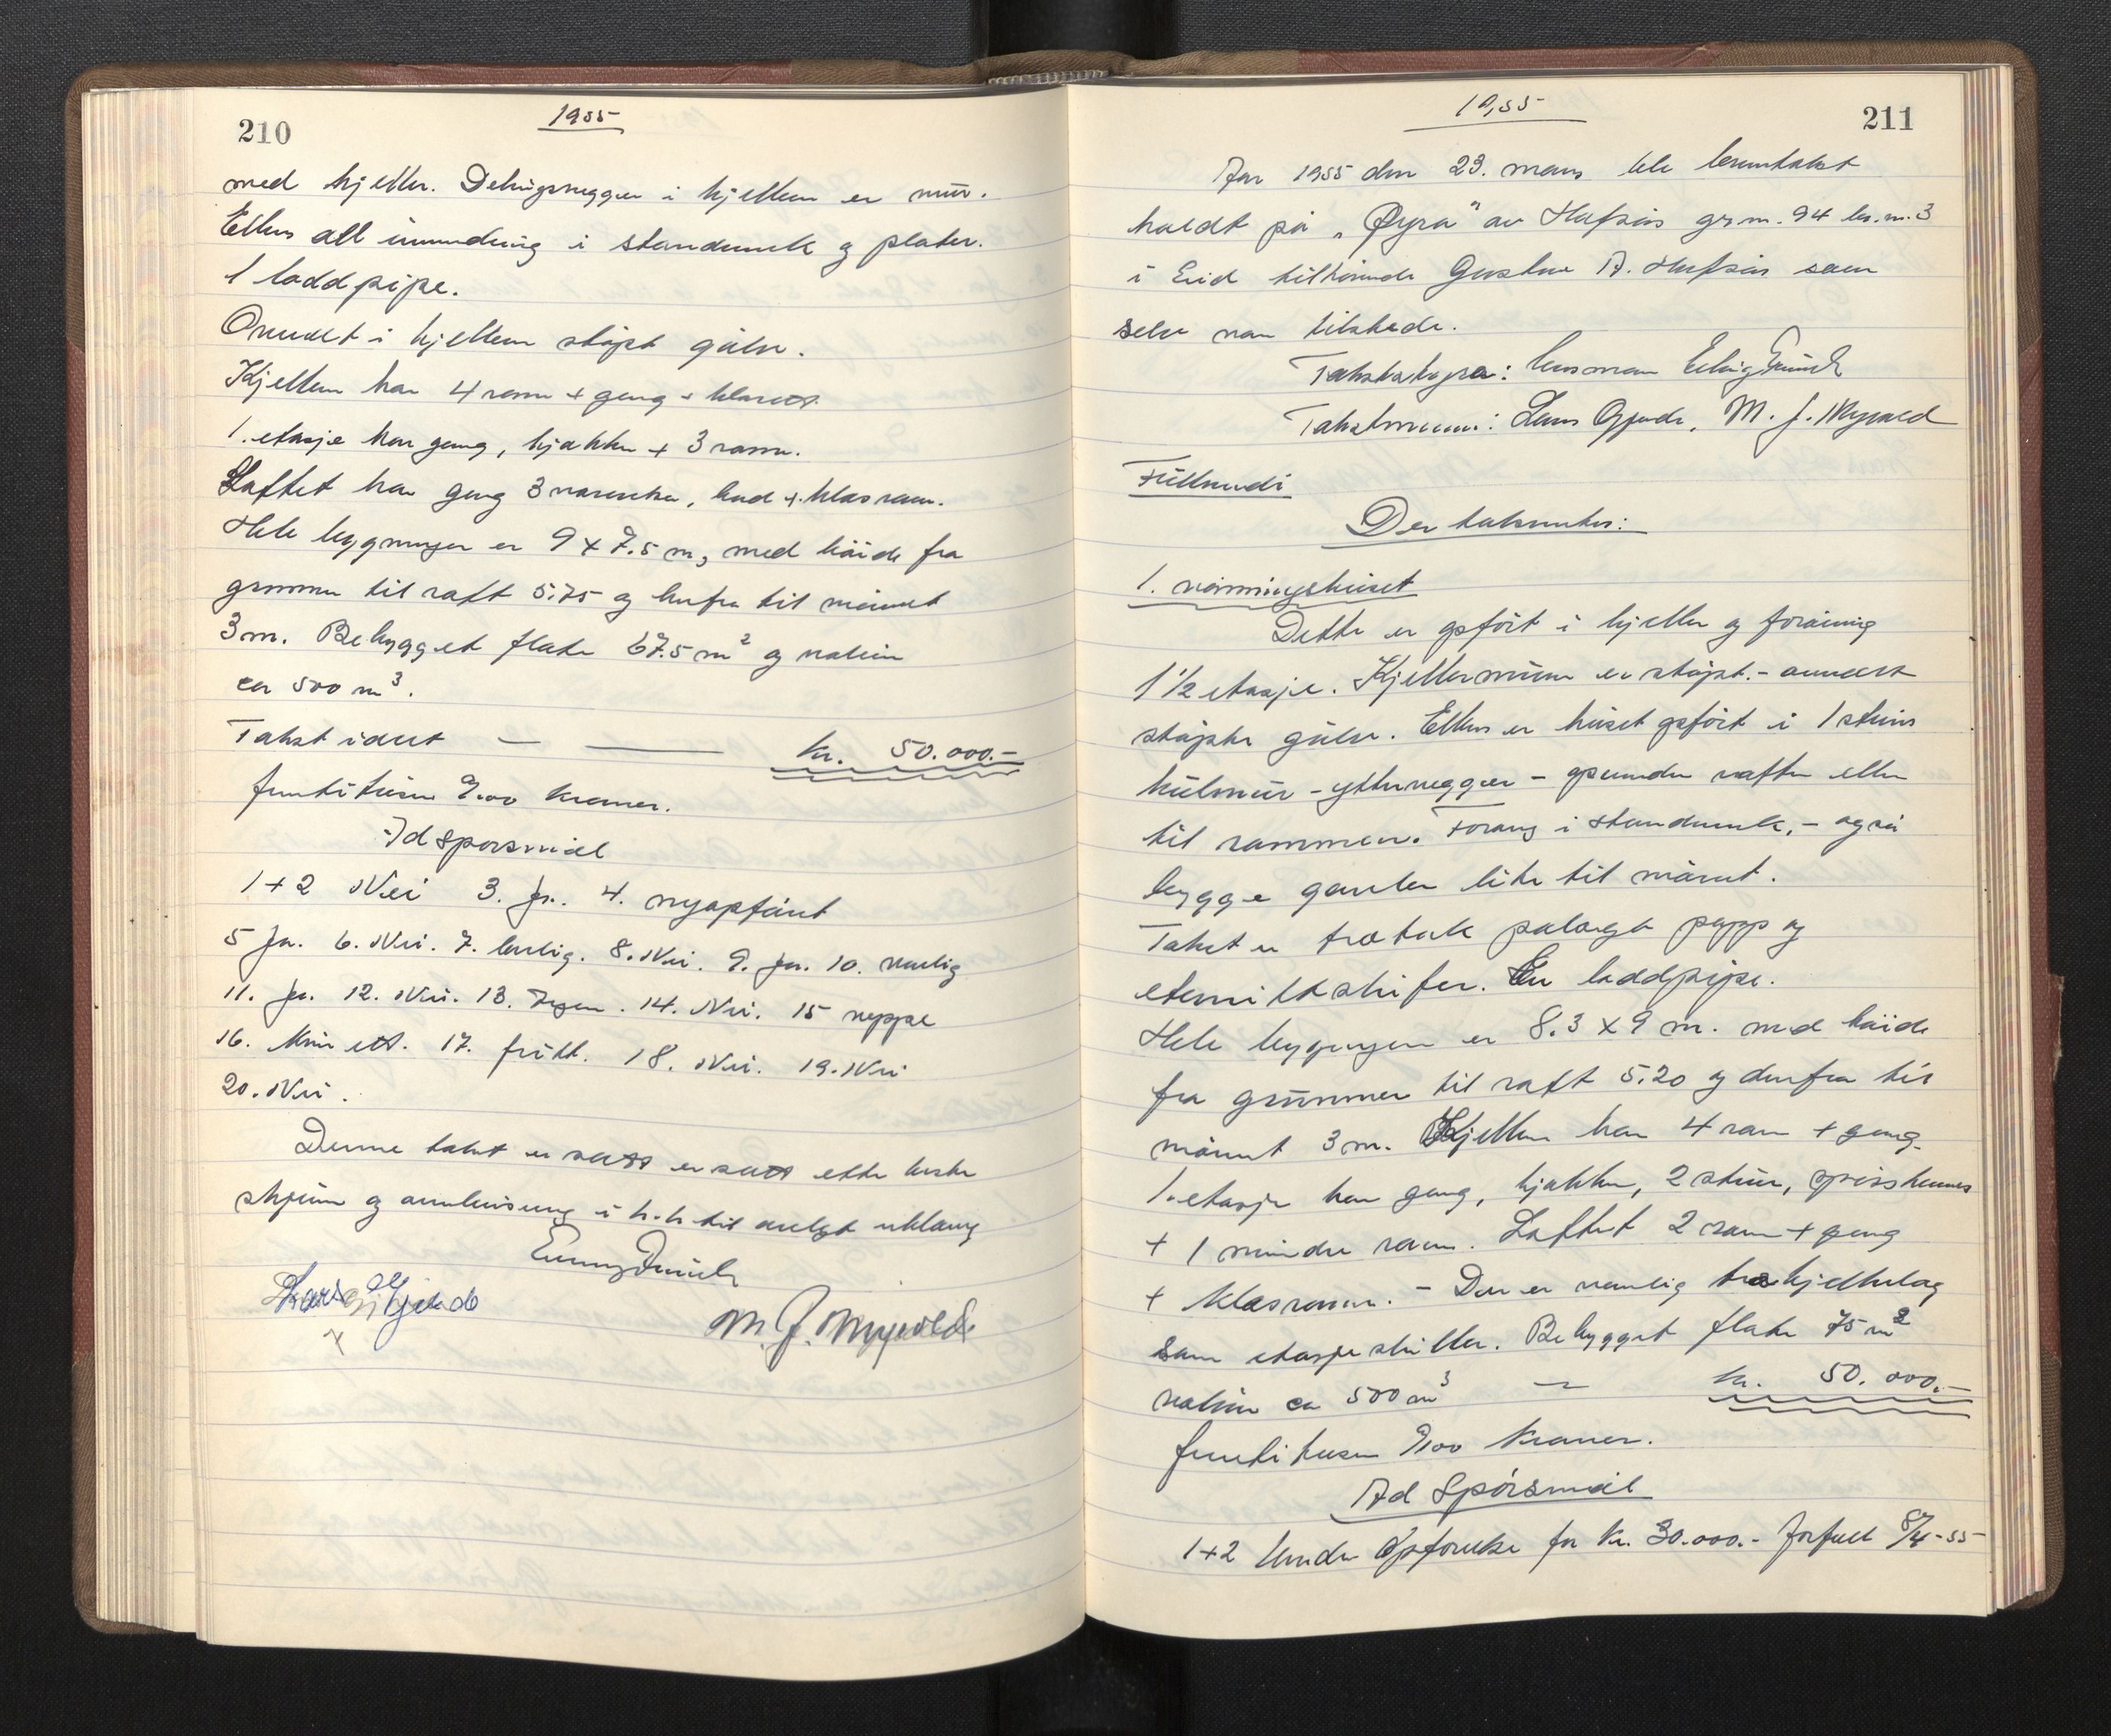 210
1955
med kjeller. Delingsvegger i kjelleren er mur.
Ellers all innredning i standverk og plater.
1 loddpipe.
Overalt i kjelleren støpt gulv.
Kjelleren har 4 rom + gang + klosett.
1. etasje har gang, kjøkken + 3 rom.
Loftet har gang 3 soverom, bad + klosrom.
Hele bygningen er 9 x 7.5 m, med høide fra
grunnen til raft 5.75 og derfra til mønet
3 m. Bebygget flate 67.5 m² og volum
ca 500 m³.
Takst idert — — kr. 50.000.-
femtitusen 0/00 kroner.
Ad spørsmål
1+2 Nei 3. Ja. 4. nyoppført
5 Ja. 6. Nei. 7. 8. Nei. 9. Ja. 10. vanlig
11. Ja. 12. Nei. 13. Ingen. 14. Nei. 15 neppe
16. 17. fritt. 18. Nei. 19. Nei
20. Nei.
Denne takst er satt er satt etter beste
skjønn og overbevisning i h.h. til
M. J. Myrvold
1955
211
År 1955 den 23. mars ble branntakst
holdt på "Øyra" av Hafsås gr.nr. 94 br.nr. 3
i Eid tilhørende Gustav A. Hafsås som
selv var tilstede.
Takstbestyrer: lensmann
Takstmenn: Lars Gjerde, M. J. Myrvold
Der takseres:
1. våningshuset
Dette er opført i kjeller og forøvrig
1 1/2 etasje. Kjellermuren er støpt. - overalt
støpte gulv. Ellers er huset opført i 1 steins
hulmur - yttervegger - oppunder raftet eller
til rammen. Forøvrig i standverk, - også
begge gavler like til mønet.
Taket er tretak pålagt papp og
eternittskifer. En loddpipe.
Hele bygningen er 8.3 x 9 m. med høide
fra grunnen til raft 5.20 og derfra til
mønet 3 m. Kjelleren har 4 rom + gang.
1. etasje har gang, kjøkken, 2 stuer,
+ 1 mindre rom. Loftet 2 rom + gang
+ klosrom. - Der er vanlig trebjelkelag
som etasjeskiller. Bebygget flate 75 m²
volum ca 500 m³ — kr. 50.000.-
femtitusen 0/00 Kroner.
Ad Spørsmål
1+2 Under opførelse for kr. 30.000.- forfall 8/4-55